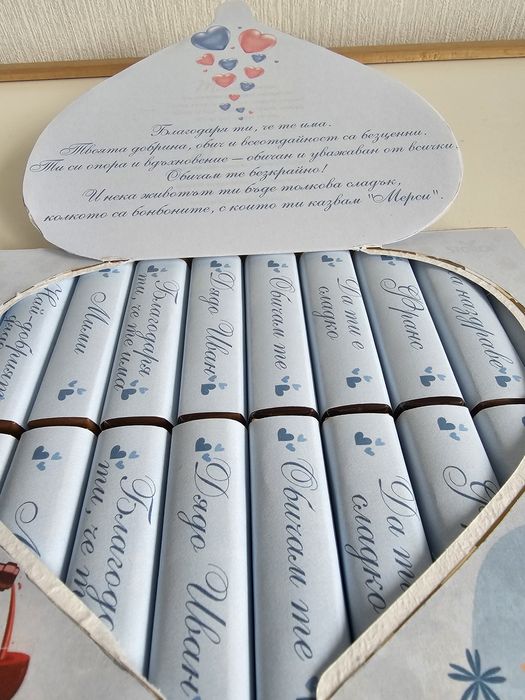 Благодаря ти, че те има.
Твоята добрина, обич и всеотдайност са безценни.
Ти си опора и вдъхновение – обичан и уважаван от всички.
Обичам те безкрайно!
И нека животът ти бъде толкова сладък,
колкото са бонбоните, с които ти казвам "Мерси".
Най-добрият
Мили
Благодаря
ти, че те има
Дядо Иван
Обичам те
Да ти е
сладко
Франс
На наздраве
Благода
ти, че т
Дядо Иван
Обичам те
Да ти
сладко